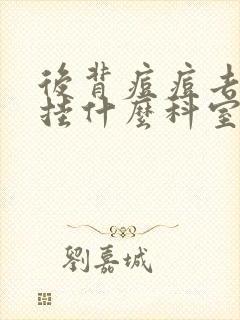 後背痘痘去
挂什麼科室
劉嘉城